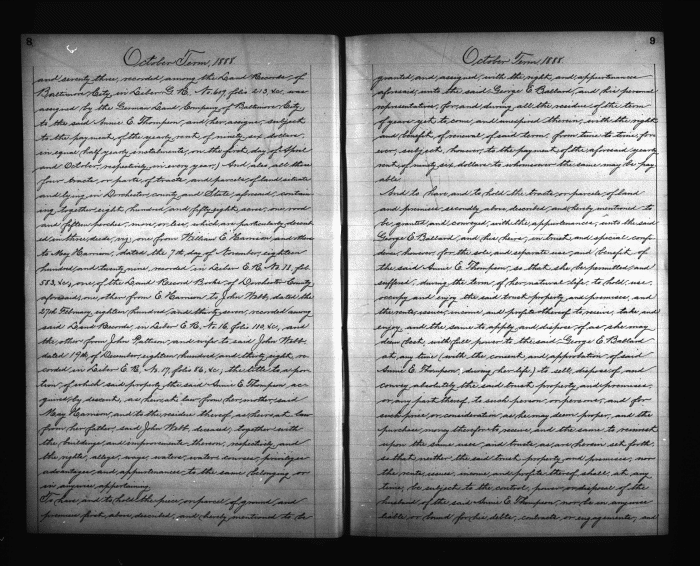 8
October Term, 1888
and seventy three, recorded among the Land Records of
Baltimore City in Liber G. R. No. 647 folio 213, &c, was
assigned by the German Land Company of Baltimore City
to the said Annie E. Thompson and her assigns, subject
to the payment of the yearly rent of ninety six dollars
in equal half yearly instalments, on the first day of April
and October, respectively, in every year,) And also all them
four tracts, or parts of tracts and parcels, of land situate
and lying in Dorchester county and State, aforesaid, contain-
ing together eight hundred and fifty eight acres, one rood
and fifteen perches, more or less, which are particularly describ-
ed in three deeds, viz, one from William E. Harrison and others
to Mary Harrison, dated the 7th day of November, eighteen
hundred and twenty nine, recorded in Liber E. R. No. 11, folio
583, &c, one of the Land Record Books of Dorchester County
aforesaid; one other from E. Harrison to John Webb, dated the
27th February, eighteen hundred and thirty seven, recorded among
said Land Records, in Liber E. R. No. 16, folio 110, &c, and
the other from John Pattison and wife to said John Webb
dated 19th of December, eighteen hundred and thirty eight, re-
corded in Liber E. R. No. 17, folio 56, &c, the title to a por-
tion of which said property, the said Annie E. Thompson ac-
quired by descent, as heir at law from her mother, said
Mary Harrison, and to the residue thereof, as heir at law
from her father, said John Webb, deceased; together with
the buildings and improvements thereon, respectively and
the rights, alleys, ways, waters, water courses, privileges
advantages, and appurtenances to the same belonging or
in anywise appertaining.
To have and to hold the piece or parcel of ground, and
premises first above described, and hereby mentioned to be
9
October Term, 1888
granted and assigned, with the rights and appurtenances
aforesaid, unto the said George E. Ballard, and his personal
representatives, for and during all the residue of the term
of years yet to come and unexpired therein, with the right
and benefit of renewal of said term from time to time, for-
ever, subject, however, to the payment of the aforesaid yearly
rent of ninety six dollars to whomsoever the same may be pay-
able.
And to have and to hold the tracts, or parcels of land
and premises secondly above described and hereby mentioned to
be granted and conveyed, with the appurtenances, unto the said
George E. Ballard, and his heirs, in trust, and special confi-
dence, however, for the sole and separate use, and benefit of
the said Annie E. Thompson, so that she be permitted and
suffered, during the term of her natural life, to hold, use,
occupy and enjoy the said trust property and premises, and
the rents, issues, income and profits thereof to receive, take and
enjoy, and the same to apply and dispose of as she may
deem best, with full power to the said George E. Ballard
at any time (with the consent and approbation of said
Annie E. Thompson, during her life,) to sell, dispose of, and
convey absolutely the said trust property and premises,
or any part thereof, to such person or persons, and for
such price, or consideration, as he may deem proper, and the
purchase money therefor to receive, and the same to reinvest
upon the same uses, and trusts, as are herein set forth
so that neither the said trust property and premises, nor
the rents, issues, income and profits thereof shall, at any
time, be subject to the control, power or disposal of the
husband of the said Annie E. Thompson, nor be in anywise
liable or bound for his debts, contracts, or engagements, and